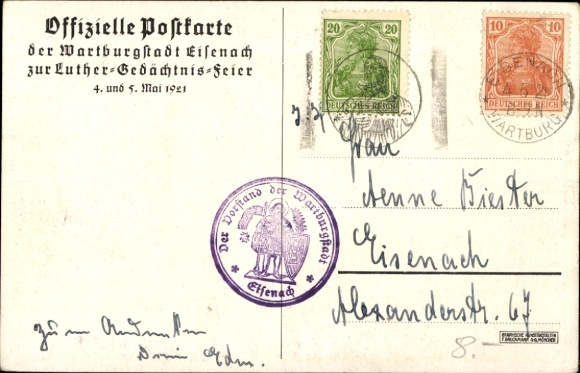 Offizielle Postkarte
der Wartburgstadt Eisenach
zur Luther-Gedächtnis-Feier
4. und 5. Mai 1921
20 20
DEUTSCHES REICH
10 10
DEUTSCHES REICH
EISENACH
4.5.21
WARTBURG
Frau
Aenne Biester
Eisenach
Alexanderstr. 67
Der Vorstand der Wartburgstadt
* Eisenach *
zum Andenken
8.-
GRAPHISCHE KUNSTANSTALTEN
F. BRUCKMANN A.G. MÜNCHEN